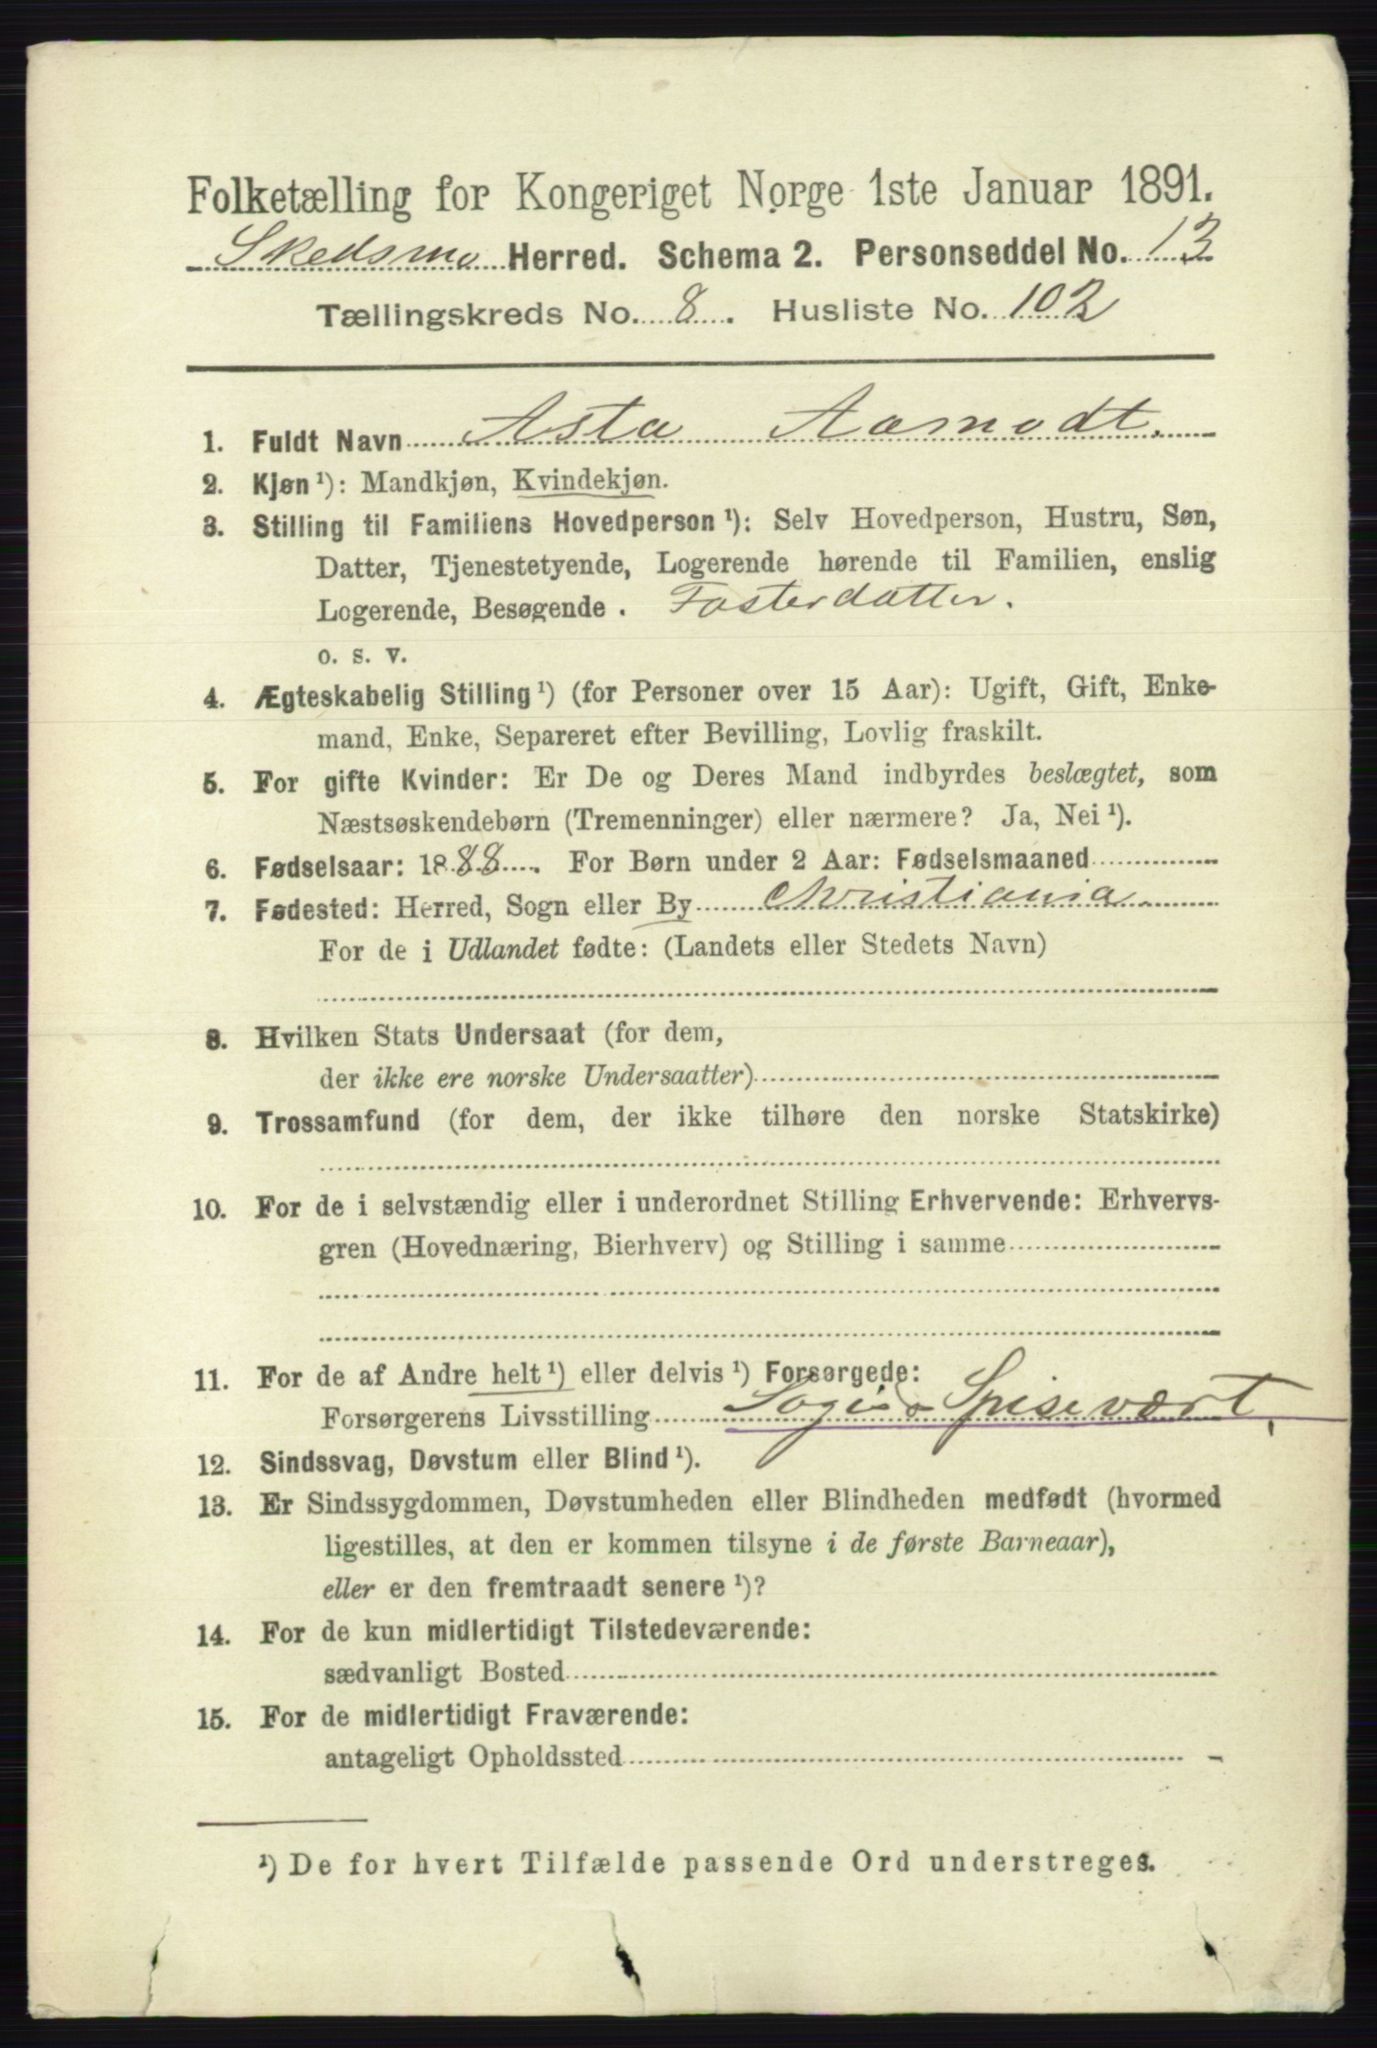 Folketælling for Kongeriget Norge 1ste Januar 1891.
Skedsmo Herred. Schema 2. Personseddel No. 13
Tællingskreds No. 8. Husliste No. 102
1. Fuldt Navn Asta Aamodt.
2. Kjøn ¹): Mandkjøn, Kvindekjøn.
3. Stilling til Familiens Hovedperson ¹): Selv Hovedperson, Hustru, Søn,
Datter, Tjenestetyende, Logerende hørende til Familien, enslig
Logerende, Besøgende . Fosterdatter.
o. s. v.
4. Ægteskabelig Stilling ¹) (for Personer over 15 Aar): Ugift, Gift, Enke-
mand, Enke, Separeret efter Bevilling, Lovlig fraskilt.
5. For gifte Kvinder: Er De og Deres Mand indbyrdes beslægtet, som
Næstsøskendebørn (Tremenninger) eller nærmere? Ja, Nei ¹).
6. Fødselsaar: 1888. For Børn under 2 Aar: Fødselsmaaned
7. Fødested: Herred, Sogn eller By Christiania.
For de i Udlandet fødte: (Landets eller Stedets Navn)
8. Hvilken Stats Undersaat (for dem,
der ikke ere norske Undersaatter)
9. Trossamfund (for dem, der ikke tilhøre den norske Statskirke)
10. For de i selvstændig eller i underordnet Stilling Erhvervende: Erhvervs-
gren (Hovednæring, Bierhverv) og Stilling i samme
11. For de af Andre helt ¹) eller delvis ¹) Forsørgede:
Forsørgerens Livsstilling Spisevært.
12. Sindssvag, Døvstum eller Blind ¹).
13. Er Sindssygdommen, Døvstumheden eller Blindheden medfødt (hvormed
ligestilles, at den er kommen tilsyne i de første Barneaar),
eller er den fremtraadt senere ¹)?
14. For de kun midlertidigt Tilstedeværende:
sædvanligt Bosted
15. For de midlertidigt Fraværende:
antageligt Opholdssted
¹) De for hvert Tilfælde passende Ord understreges.